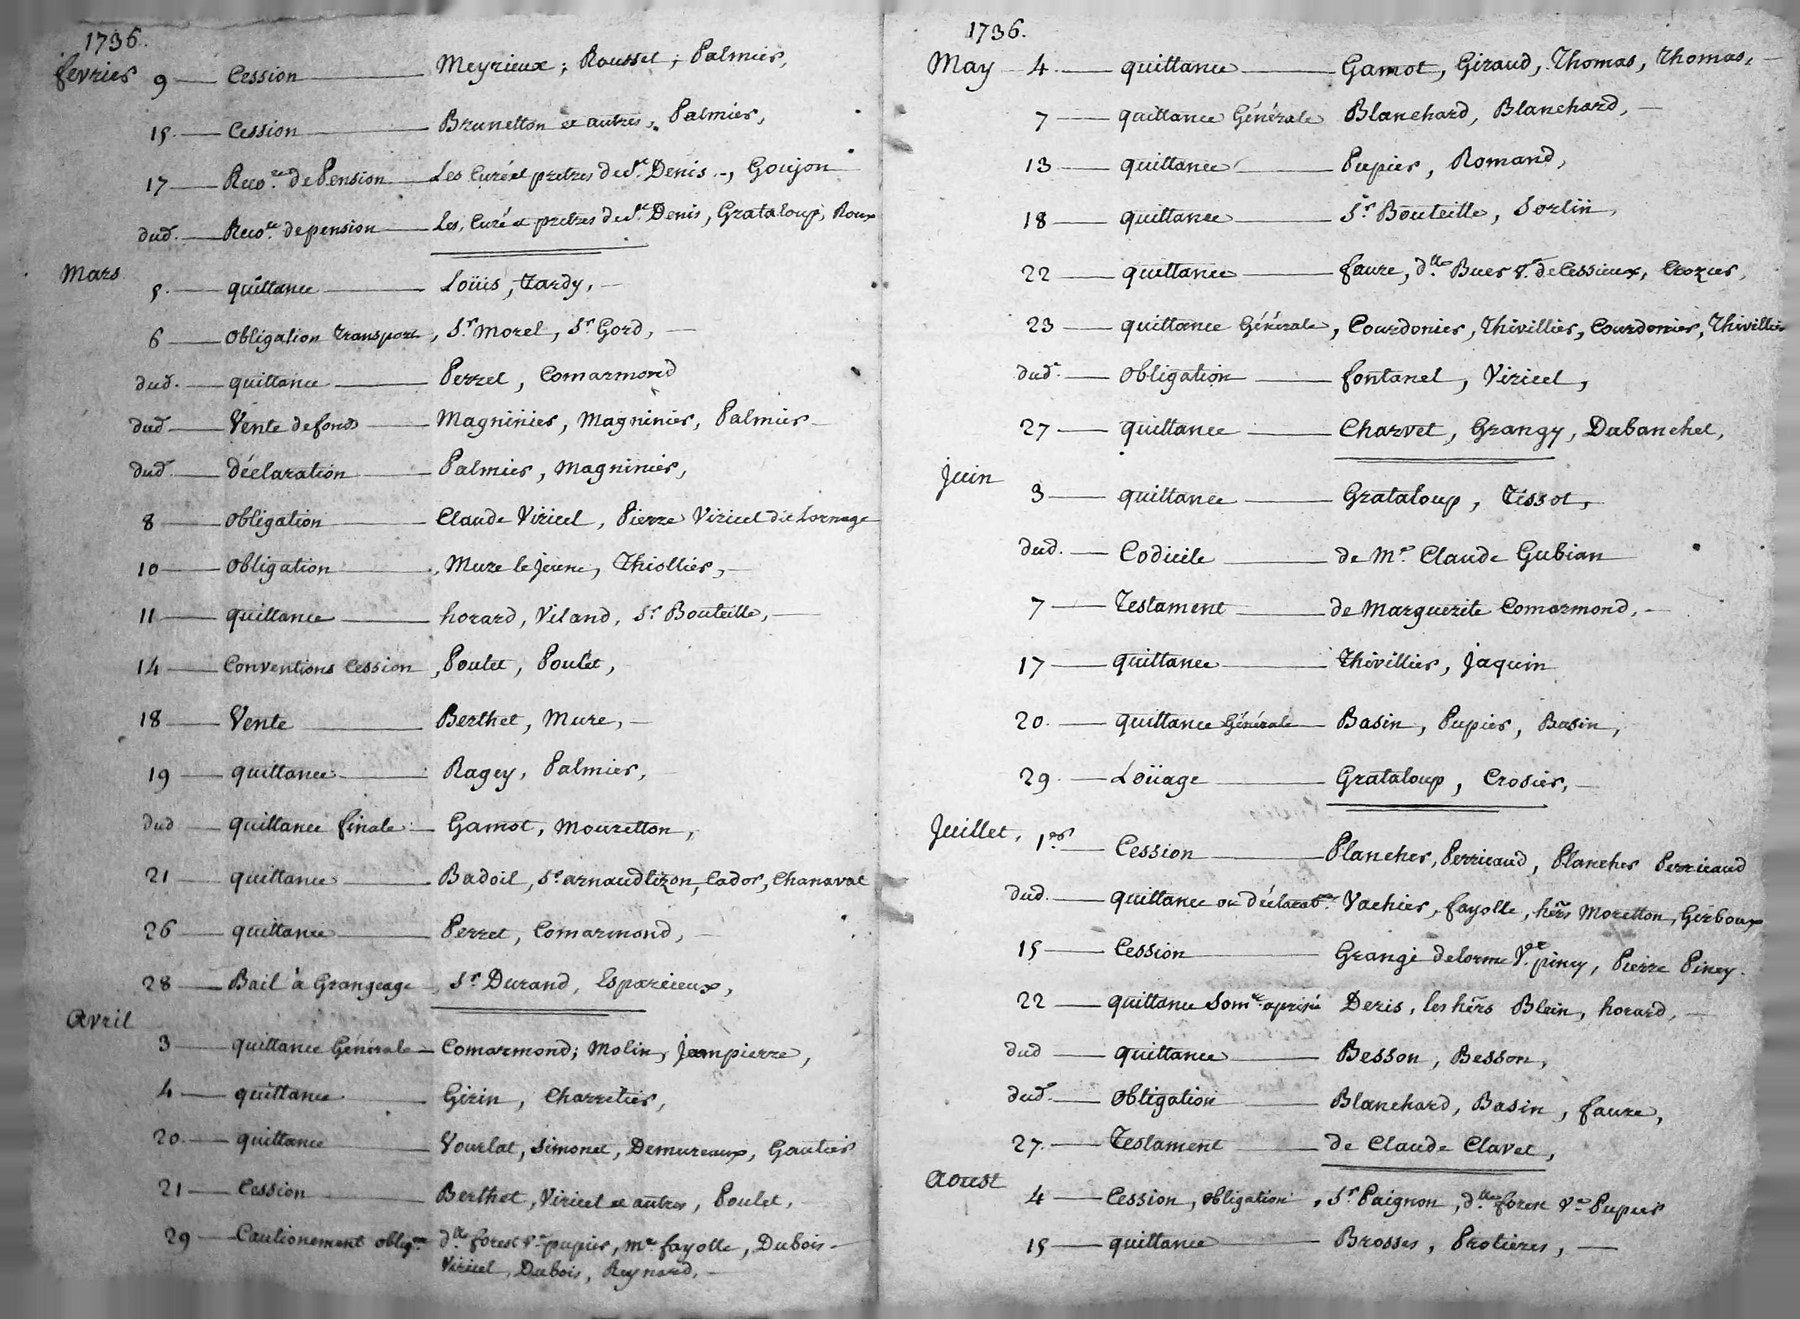 1736.
fevrier 9 Cession Meyrieux; Rousset; Palmier,
15. Cession Brunetton et autres, Palmier,
17 Reco.ce de Pension Les Curé et pretres de St. Denis, Goujon
dud. Reco.ce de pension Les Curé et pretres de St. Denis, Grataloup, Roux
Mars 5. quittance Loüis, Tardy,
6 obligation transport, Sr. Morel, Sr. Gord,
dud. quittance Perret, Comarmond
dud. Vente de fonds Magninier, Magninier, Palmier
dud. déclaration Palmier, Magninier,
8 obligation Claude Viricel, Pierre Viricel dit Lornage
10 obligation Mure le jeune, Thiollier,
11 quittance horard, Viland, Sr. Bouteille,
14 Conventions Cession, Poulet, Poulet,
18 Vente Berthet, Mure,
19 quittance Ragey, Palmier,
dud quittance finale Gamot, Mouretton,
21 quittance Badoil, Sr. arnaudtizon, Cador, Chanavat
26 quittance Perret, Comarmond,
28 Bail à Grangeage, Sr. Durand, Esparcieux,
Avril
3 quittance Générale Comarmond; Molin, Jeanpierre,
4 quittance Girin, Charretier,
20. quittance Vourlat, Simonet, Demureaux, Gautier
21 Cession Berthet, Viricel et autres, Poulet,
29 Cautionement oblig.on d.lle forest Ve. pupier, Me. fayolle, Dubois
Viricel, Dubois, Reynard,
1736.
May 4. quittance Gamot, Giraud, Thomas, Thomas,
7 quittance Générale Blanchard, Blanchard,
13 quittance Pupier, Romand,
18 quittance Sr. Bouteille, Sorlin,
22 quittance faure, d.lle Buer Ve. de Cessieux, Crozier,
23 quittance Générale, Courdonier, Thivillier, Courdonier, Thivillier
dud. obligation fontanel, Viricel,
27 quittance Charvet, Grangy, Dubanchet,
Juin 3 quittance Grataloup, Tissot,
dud. Codicile de Me. Claude Gubian
7 Testament de Marguerite Comarmond,
17 quittance Thivillier, Jaquin
20. quittance Générale Basin, Pupier, Basin,
29. Loüage Grataloup, Crosier,
Juillet, 1er. Cession Plancher, Perricaud, Plancher Perricaud
dud. quittance ou déclarat.on Vachier, fayolle, hers Moretton, Girboux
15 Cession Grangé delorme Ve. piney, Pierre Piney.
22 quittance Denis, les hers Blein, horard,
dud quittance Besson, Besson,
dud. obligation Blanchard, Basin, faure,
27. Testament de Claude Clavel,
Aoust 4 Cession, obligation, Sr. Paignon, d.lle forest Ve. Pupier
15 quittance Brosses, Protiere,